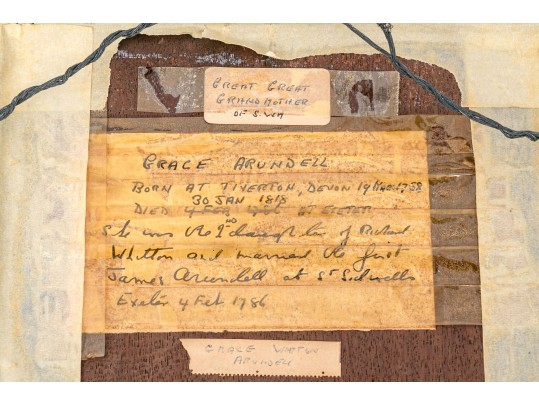 GREAT GREAT
GRANDMOTHER
OF S.WA
GRACE ARUNDELL
BORN AT TIVERTON, DEVON 19 MAR 1758
30 JAN 1818
DIED 4 FEB AT EXETER
She was the 2nd daughter of Richard
Whitton and married the first
James Arundell at St Sidwells
Exeter 4 Feb 1786
GRACE
ARUNDELL